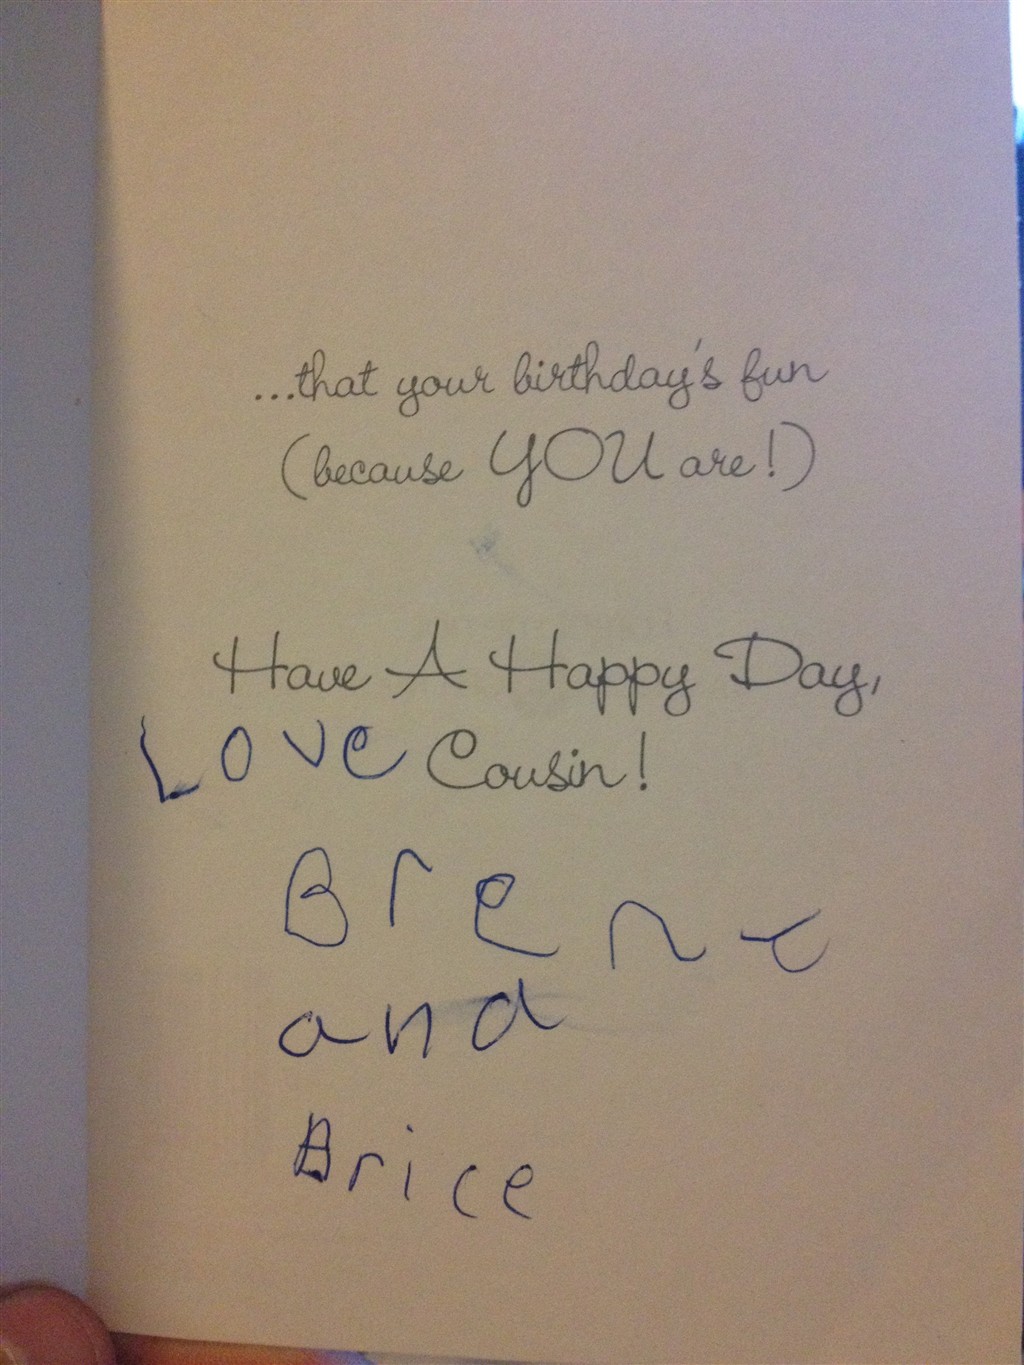 ...that your birthday's fun
(because YOU are!)
Have A Happy Day,
Love Cousin!
Brent
and
Brice